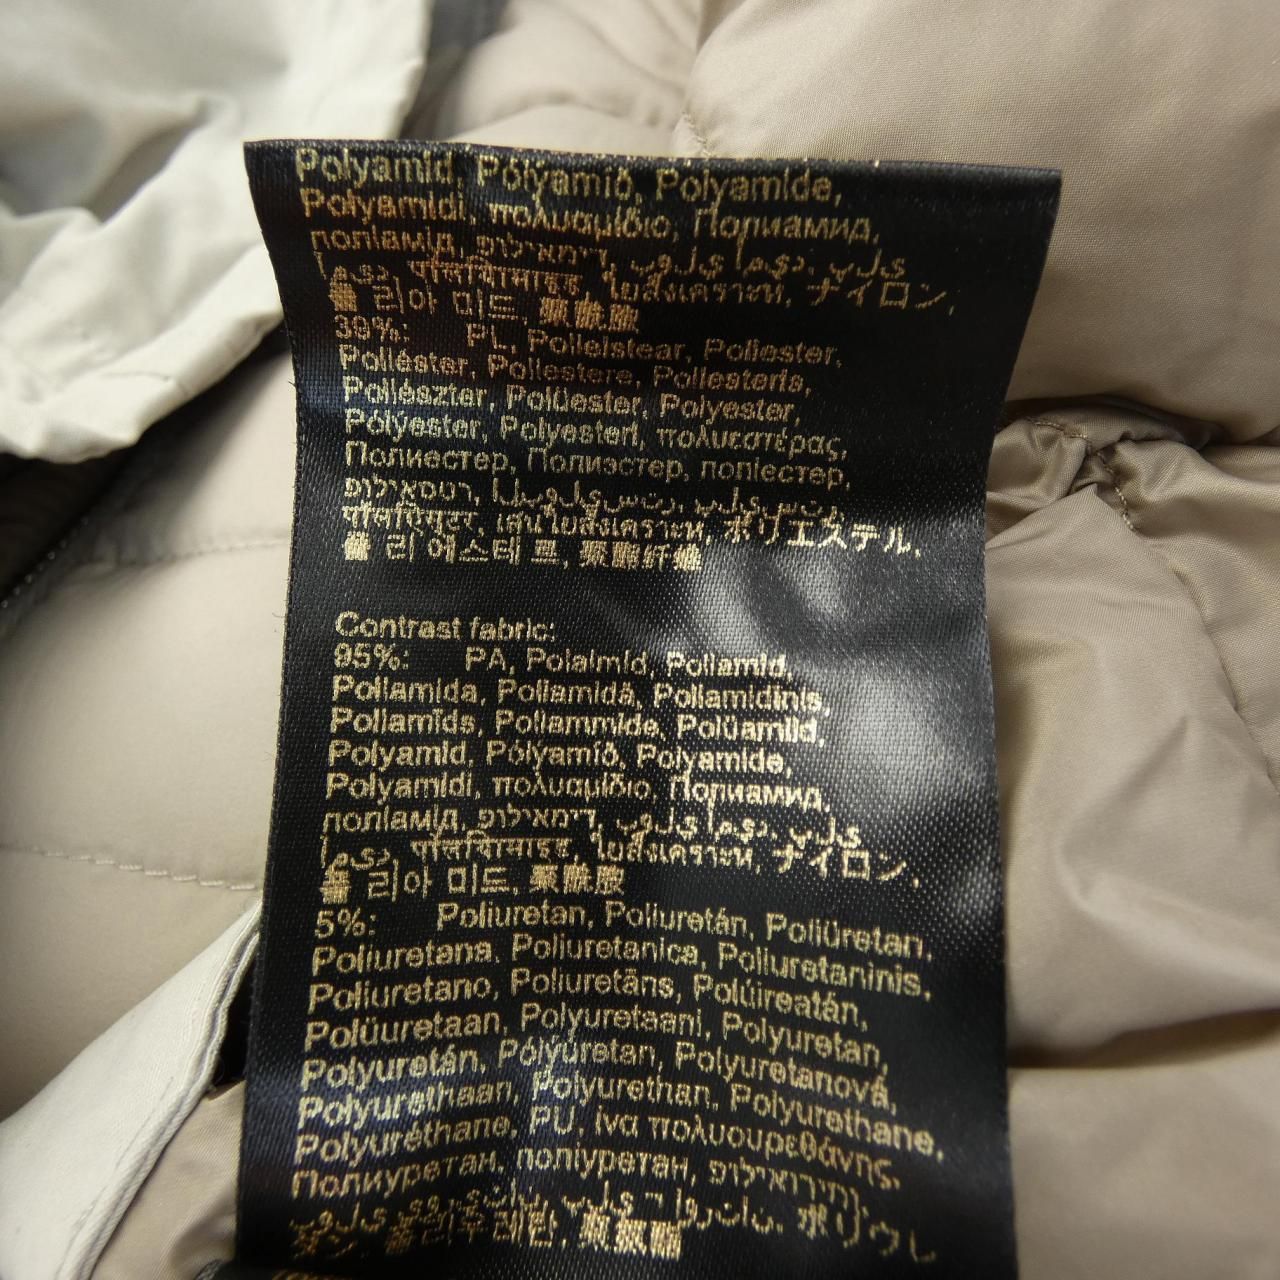 Polyamid, Pólýamíð, Polyamide,
Polyamidi, πολυαμίδιο, Полиамид,
поліамід, פוליאמיד,
ใยสังเคราะห์, ナイロン,
폴리아미드, 聚酰胺
39%: PL, Polleistear, Poliester,
Poliéster, Poliestere, Poliesteris,
Poliészter, Polüester, Polyester,
Pólýester, Polyesteri, πολυεστέρας,
Полиестер, Полиэстер, поліестер,
פוליאסטר,
เส้นใยสังเคราะห์, ポリエステル,
폴리에스테르, 聚酯纤维
Contrast fabric:
95%: PA, Polaimíd, Poliamid,
Poliamida, Poliamidă, Poliamidinis,
Poliamīds, Poliammide, Polüamiid,
Polyamid, Pólýamíð, Polyamide,
Polyamidi, πολυαμίδιο, Полиамид,
поліамід, פוליאמיד,
ใยสังเคราะห์, ナイロン,
폴리아미드, 聚酰胺
5%: Poliuretan, Poliuretán, Poliüretan,
Poliuretana, Poliuretanica, Poliuretaninis,
Poliuretano, Poliuretāns, Polúireatán,
Polüuretaan, Polyuretaani, Polyuretan,
Polyuretán, Pólýúretan, Polyuretanová,
Polyurethaan, Polyurethan, Polyurethane,
Polyuréthane, PU, ίνα πολυουρεθάνης,
Полиуретан, поліуретан, פוליאוריתן,
ポリウレ
タン, 폴리우레탄, 聚氨酯